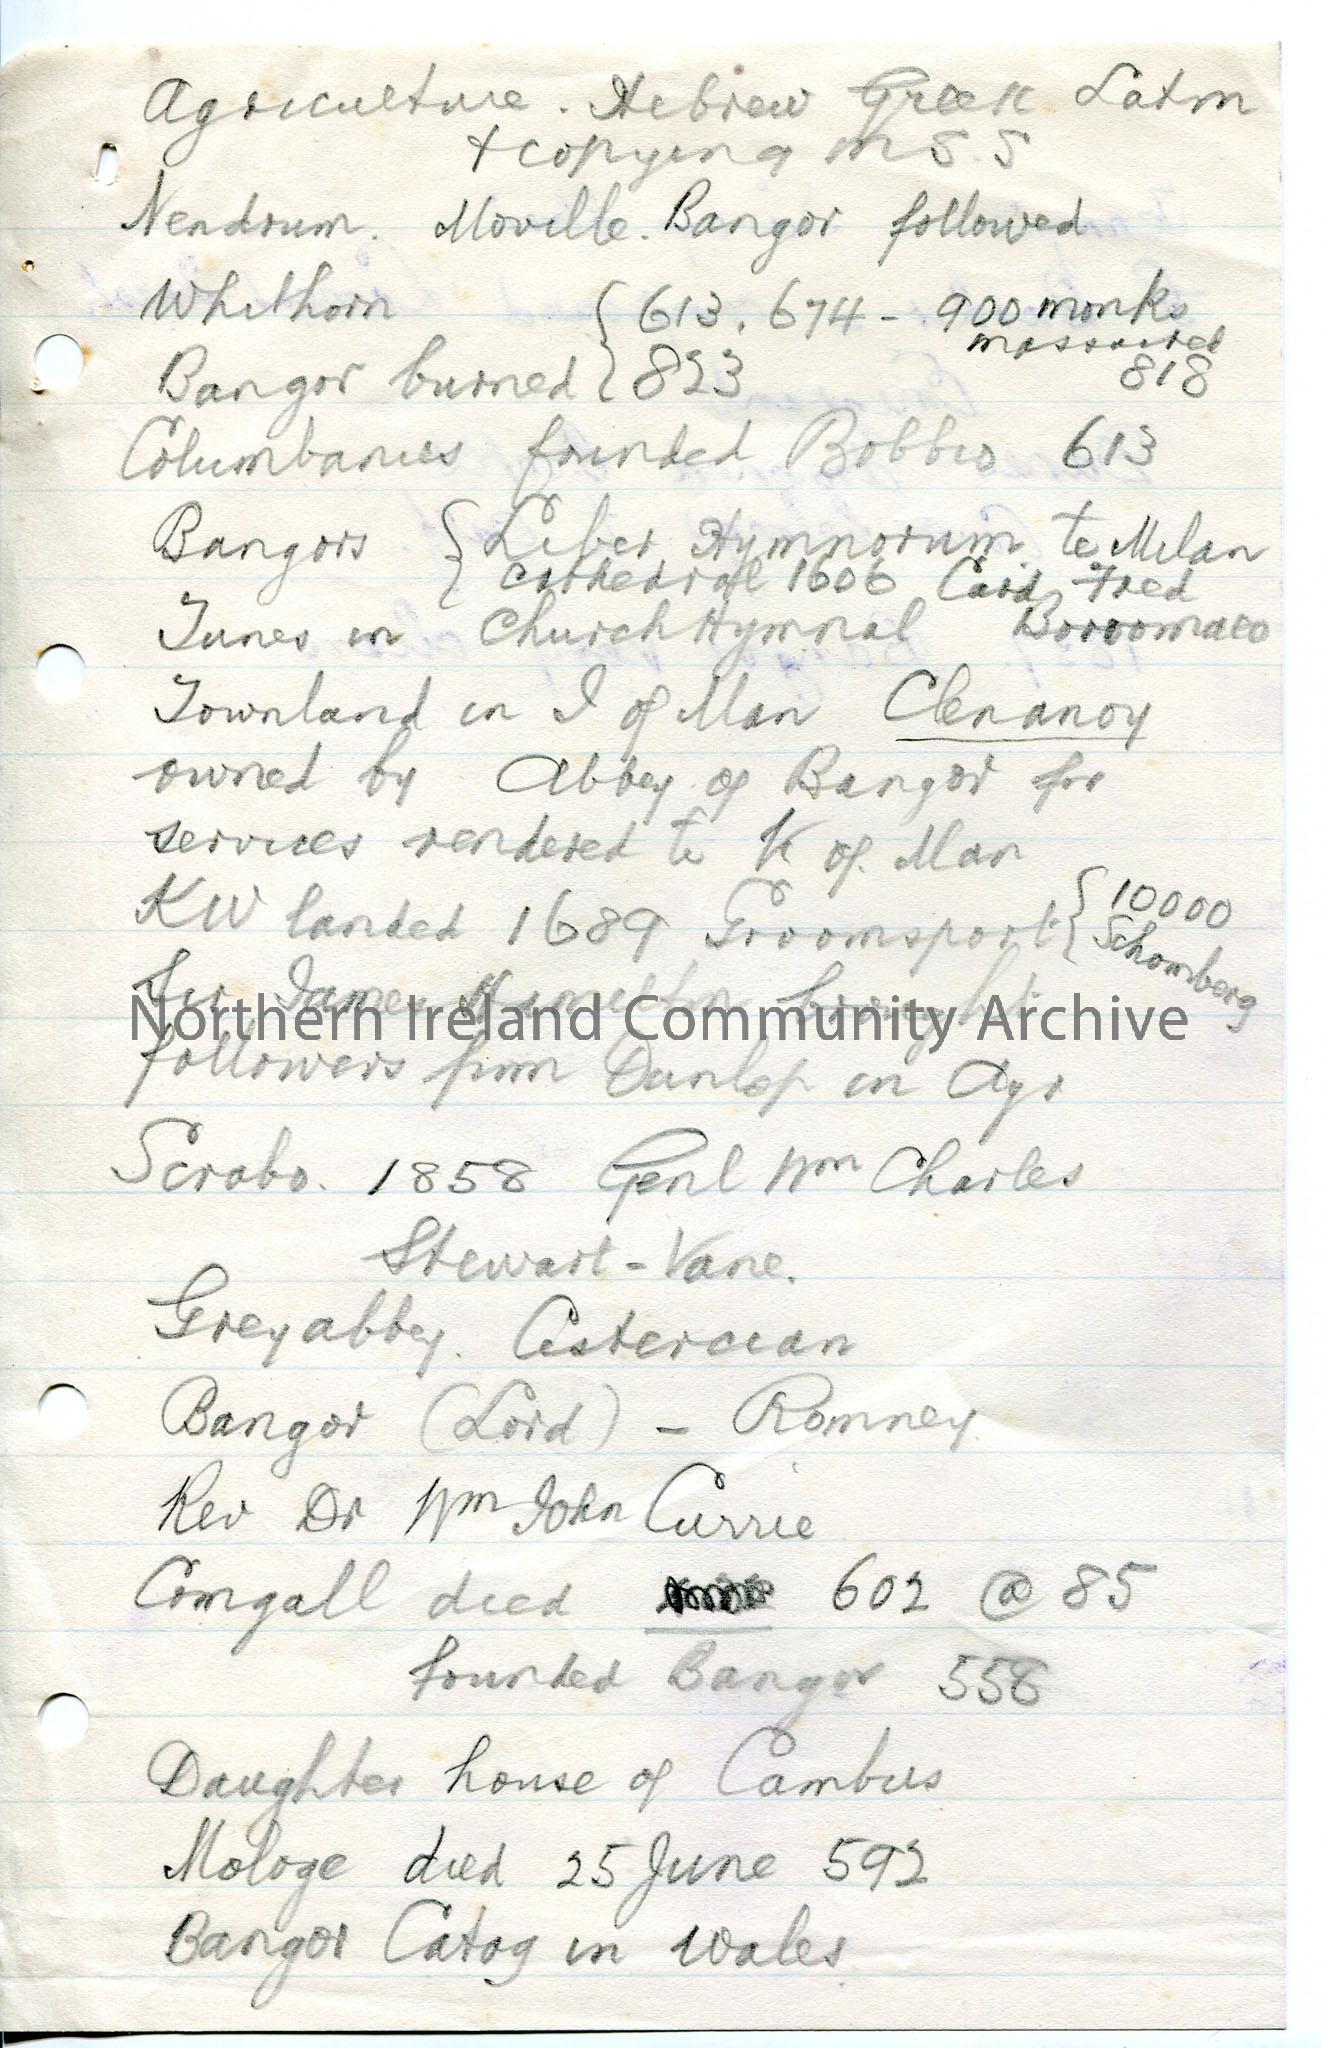 Agriculture. Hebrew Greek Latin
+ copying M S.S
Nendrum. Moville. Bangor followed
Whithorn { 613. 674 - 900 monks
massacred
Bangor burned { 823 818
Columbanus founded Bobbio 613
Bangors { Liber Hymnorum to Milan
Cathedral 1606 Card. Fred
Tunes in Church Hymnal Borromaeo
Townland in I of Man Clenanoy
owned by Abbey of Bangor for
services rendered to K of Man
KW landed 1689 Groomsport { 10000
Schomberg
Sir James Hamilton brought
Northern Ireland Community Archive
followers from Dunlop in Ayr
Scrabo. 1858 Genl Wm Charles
Stewart - Vane.
Greyabbey. Cistercian
Bangor (Lord) - Romney
Rev Dr Wm John Currie
Comgall died 602 @ 85
founded Bangor 558
Daughter house of Cambus
Mologe died 25 June 592
Bangor Catog in Wales